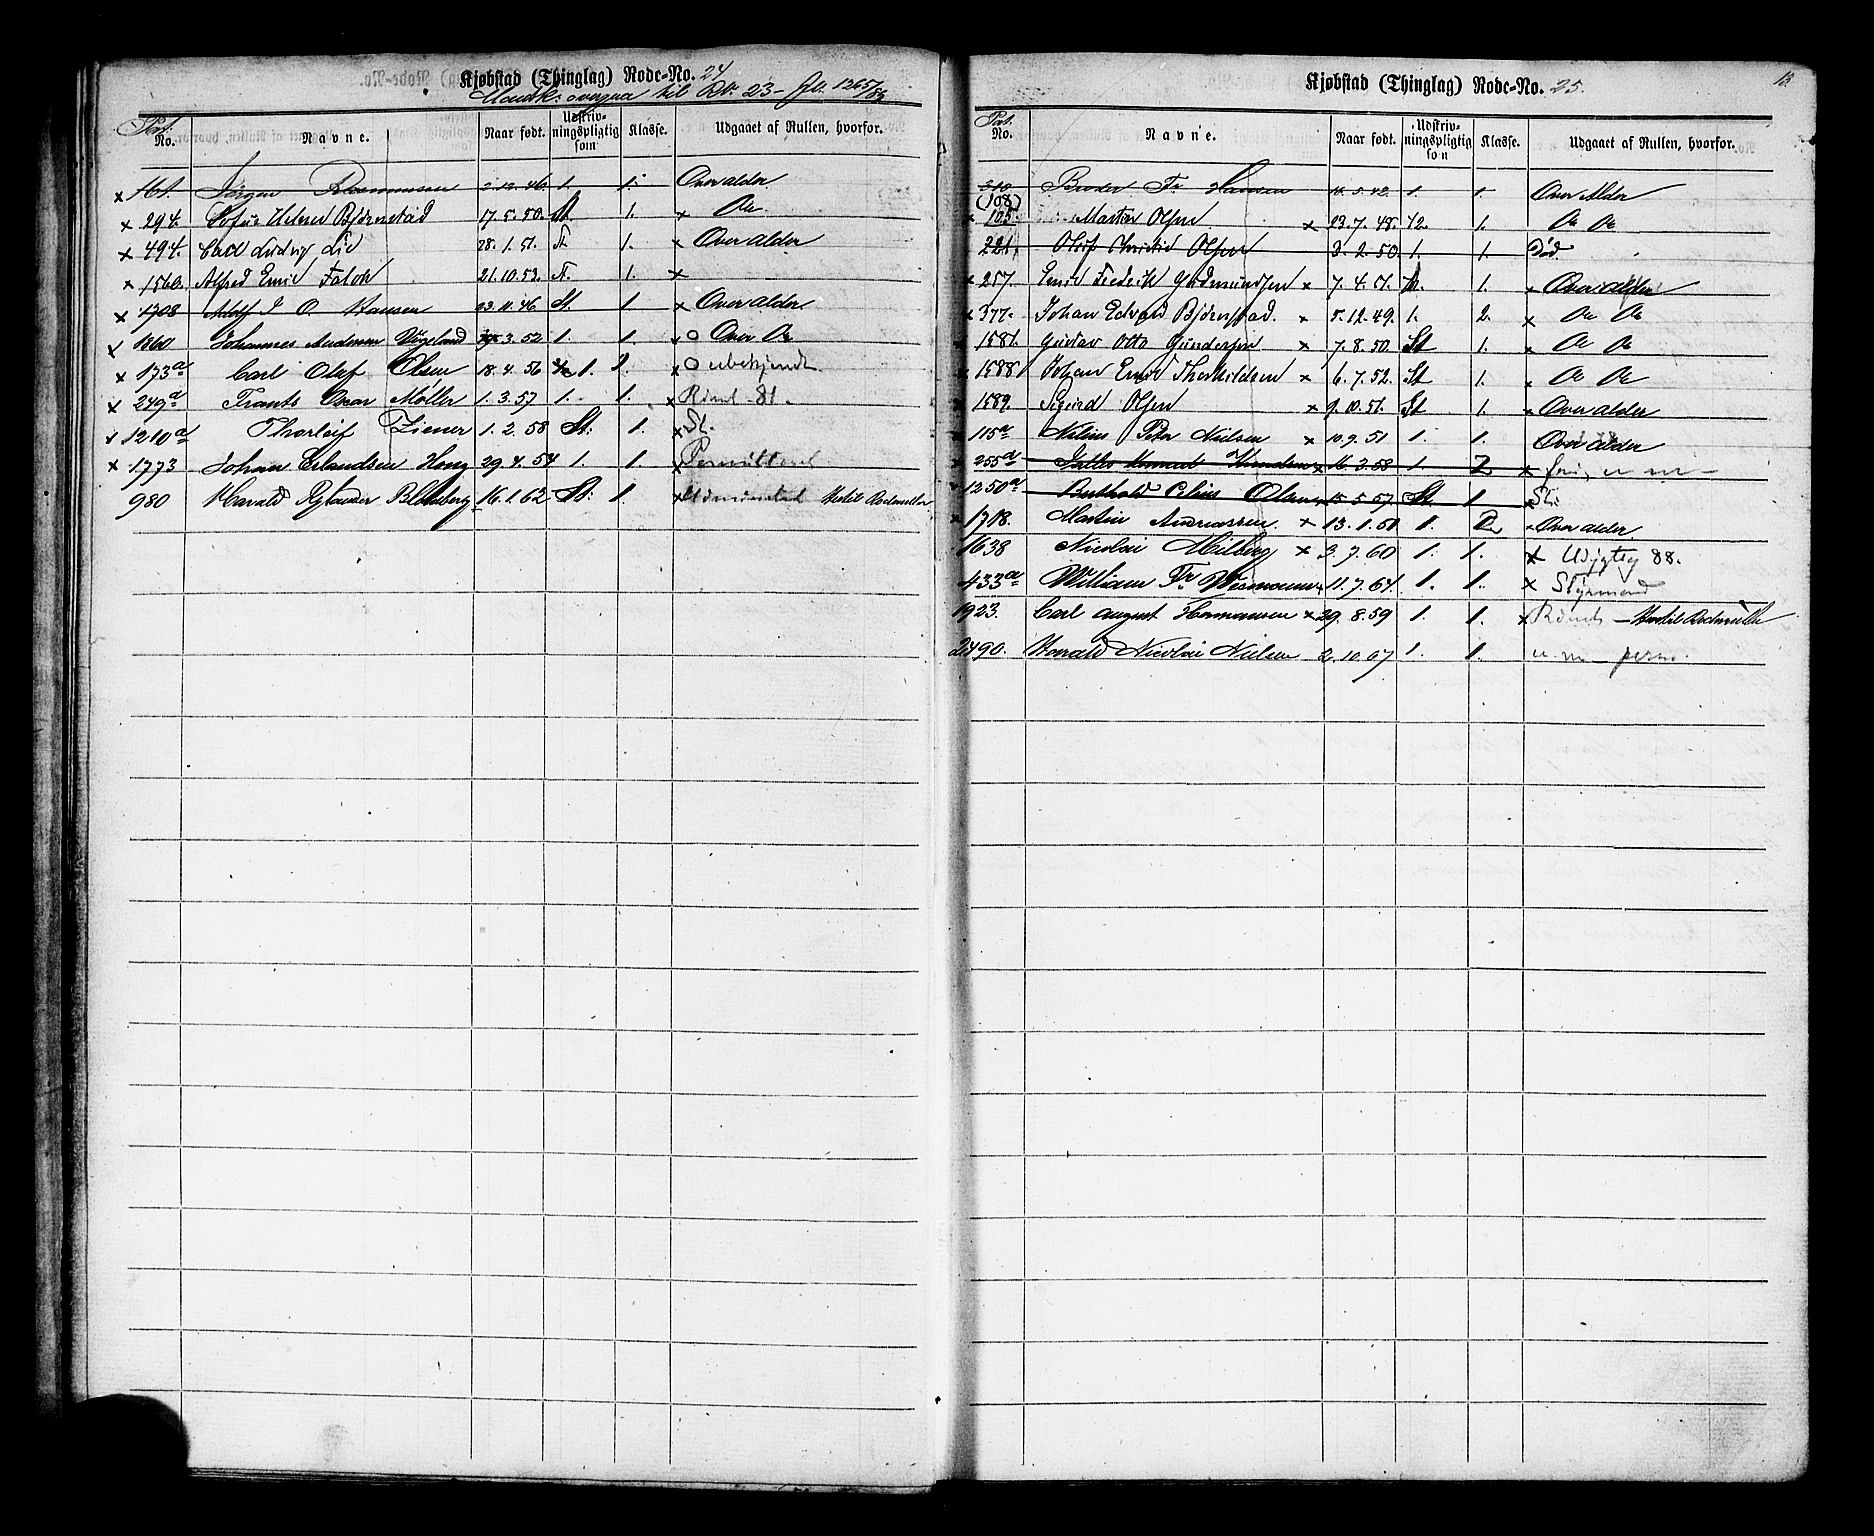 Kjøbstad (Thinglag) Rode-No. 24
Mandsk. overgaa til Rd. 23 - Jr. 1265/83
Pat. No. Navne. Naar født. Udskrivningspligtig som Klasse. Udgaaet af Rullen, hvorfor.
x 161. Jørgen Rasmussen 2.12.46 1. 1. Over alder
x 294. Bjørnstad 17.5.50. St 1. x Do
x 494. Carl Ludvig Lie 28.1.51. St. 1. x Over alder
x 1560. Alfred Emil Falck 21.10.53. St. 1. x
x 1708 Adolf J. O. Hansen 23.11.46 St. 1. x Over alder
x 1860 Johannes Andersen Vigeland 3.52 1. 1. x o Over Do
x 173a Carl Olaf Olsen 18.4.56 1. 2. x o ubekjendt
x 249a Frants Oscar Møller 1.3.57 1. 1. x Rømt - 81.
x 1210a Thorleif Ziener 1.2.58 St. 1. x St.
x 1773 Johan Erlandsen Houg 29.4.54 1. 1. x Permitteret
980 Harald Rylander Blomberg 16.1.62 St. 1. x
Kjøbstad (Thinglag) Rode-No. 25.
13.
Pat. No. Navne. Naar født. Udskrivningspligtig som Klasse. Udgaaet af Rullen, hvorfor.
310 Fr. Hansen 14.5.42 1. 1. Over Alder
(108)
x 105. Martin Olsen x 23.7.48. 12. 1. Do Do
221. Oluf Christian Olsen 3.2.50. 1. 1. Død
x 257. Emil Fredrik Gudmundsen x 7.4.51. St. 1. x Over alder
x 377. Johan Edvard Bjørnstad. x 5.12.49. 1. 2. x Do Do
1581. Gustav Otto Gundersen x 7.8.50. St 1. x Do Do
1588 Johan Emil Thorkildsen x 6.7.52. St 1. x Do Do
x 1589. Sigurd Olsen x 9.10.51. St 1. x Over alder
x 115a Nilius Peter Nielsen x 10.9.51 1. 1. Over alder
x 255a x 16.3.58 1. 2 x
x 1250a Berthold Olsen x 15.5.57. St 1. x St.
x 1718. Martin Andreassen. x 13.1.51 1. 2 x Over alder
1638 Nicolai Milberg x 3.7.60 1. 1. x Udygtig 88.
x 433a William Fr. x 11.7.61. 1. 1. x Styrmand
1923. Carl August Hermansen x 29.8.59 1. 1. x Rømt -
2490. Harald Nicolai Nielsen 2.10.67 1. 1. u. m -